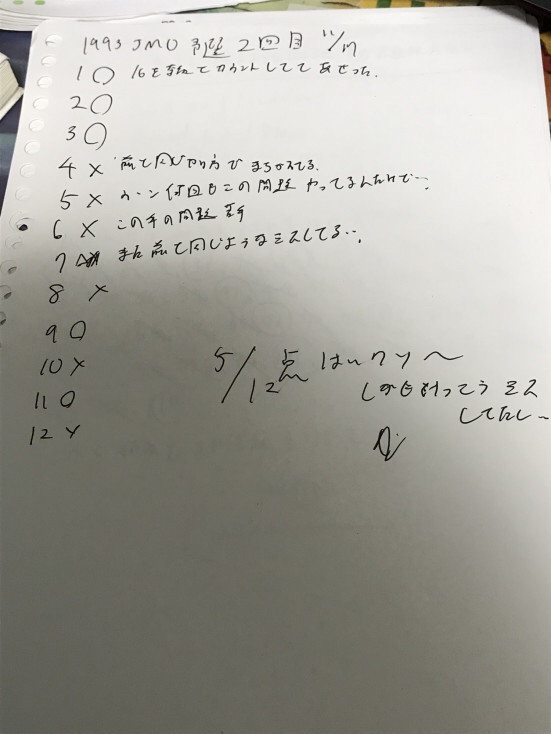 1993 JMO 予選 2回目 11/17
1 ○ 16を重複てカウントしててあせった.
2 ○
3 ○
4 × 前と同じやり方でまちがえてる.
5 × ウーン何回もこの問題やってるんだけど….
6 × この手の問題苦手
7 また前と同じようなミスしてる….
8 ×
9 ○
10 ×
11 ○
12 ×
5/12点 はいクソ〜
しかも似ってうミス
してたし〜